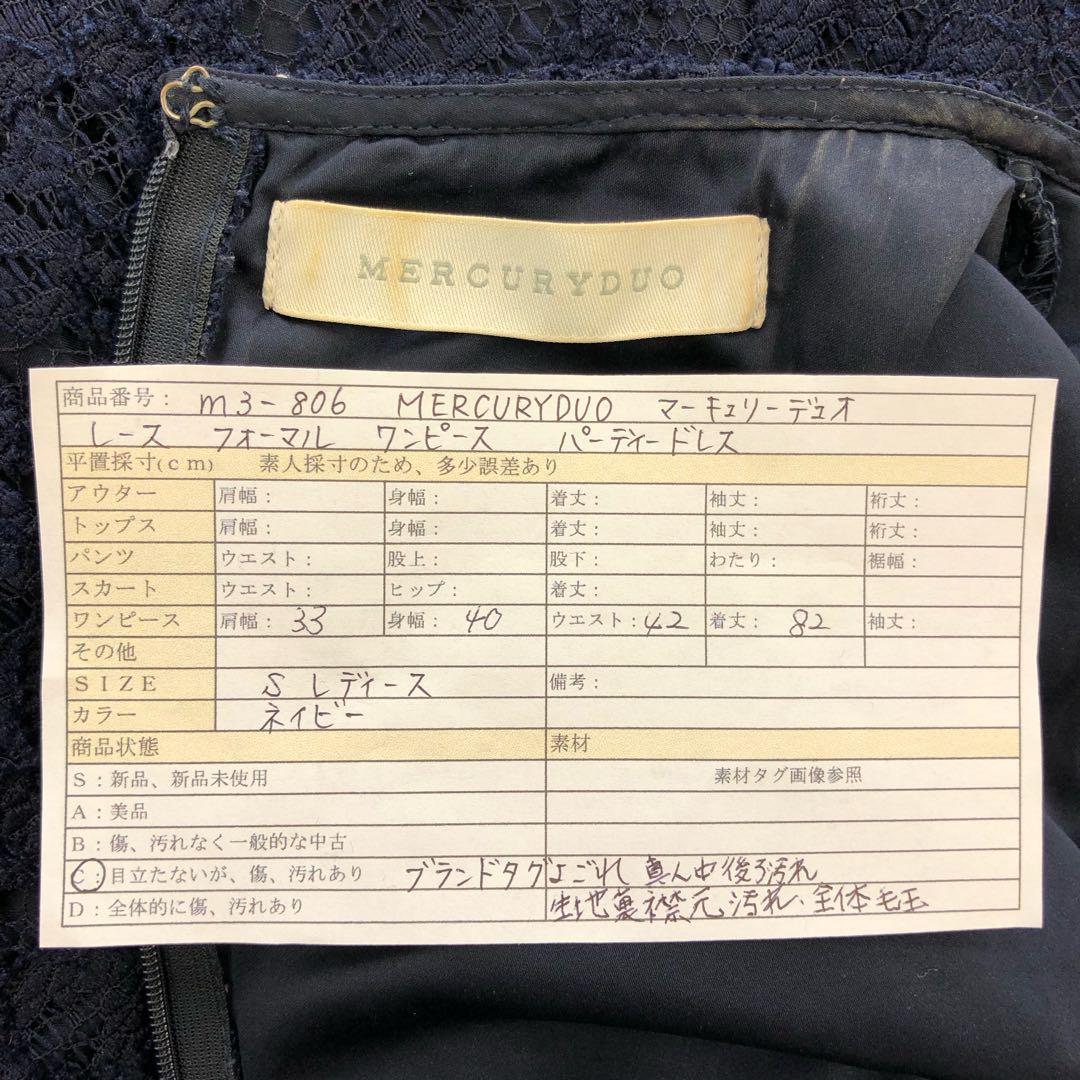 MERCURYDUO
商品番号： m3-806 MERCURYDUO マーキュリーデュオ
レース フォーマル ワンピース パーティードレス
平置採寸(cm) 素人採寸のため、多少誤差あり
アウター 肩幅： 身幅： 着丈： 袖丈： 裄丈：
トップス 肩幅： 身幅： 着丈： 袖丈： 裄丈：
パンツ ウエスト： 股上： 股下： わたり： 裾幅：
スカート ウエスト： ヒップ： 着丈：
ワンピース 肩幅： 33 身幅： 40 ウエスト：42 着丈： 82 袖丈：
その他
SIZE S レディース 備考：
カラー ネイビー
商品状態 素材
S：新品、新品未使用 素材タグ画像参照
A：美品
B：傷、汚れなく一般的な中古
C：目立たないが、傷、汚れあり ブランドタグよごれ 真ん中後ろ汚れ
D：全体的に傷、汚れあり 生地裏襟元、汚れ、全体毛玉